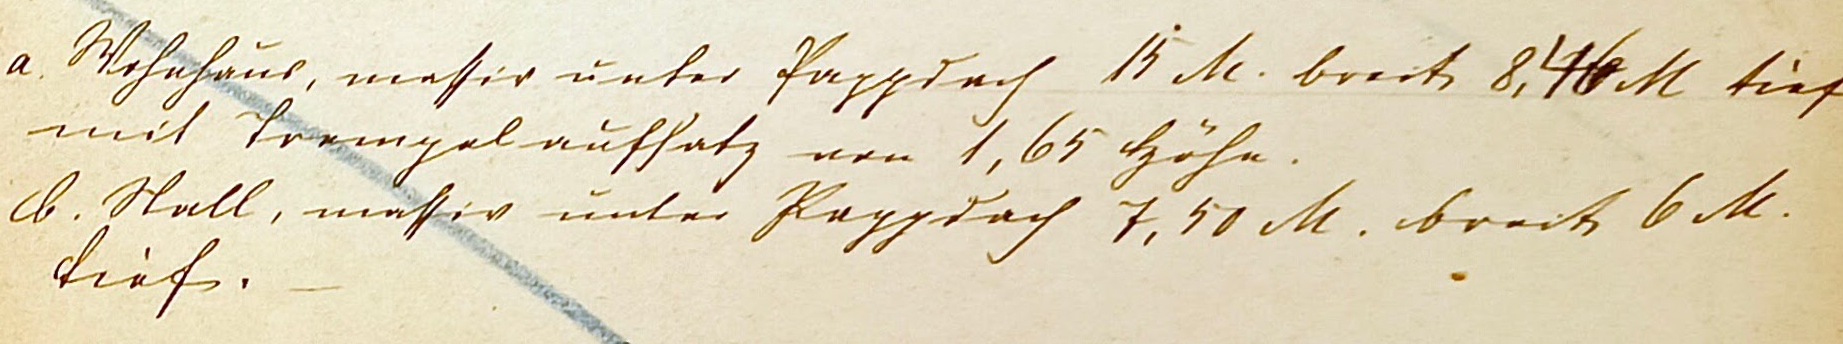 a. Wohnhaus, massiv unter Pappdach 15 M. breit 8,46 M tief
mit Trempelaufsatz von 1,65 Höhe.
b. Stall, massiv unter Pappdach 7,50 M. breit 6 M.
tief. —